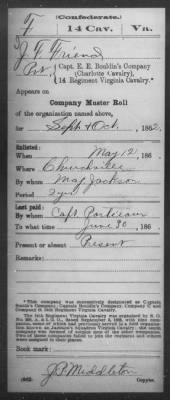 (Confederate.)
F 14 Cav. Va.
J. F. Friend
Pvt., Capt. E. E. Bouldin's Company
(Charlotte Cavalry),
14 Regiment Virginia Cavalry.*
Appears on
Company Muster Roll
of the organization named above,
for Sept & Oct, 1862.
Enlisted:
When May 12, 186
Where Churchville
By whom Maj Jackson
Period 2 yrs
Last paid:
By whom Capt.
To what time June 30, 186
Present or absent Present
Remarks:
*This company was successively designated as Captain
Bouldin's Company, Company C and
Company B, 14th Regiment Virginia Cavalry.
The 14th Regiment Virginia Cavalry was organized
Book mark:
J. P. Middleton
(642) Copyist.